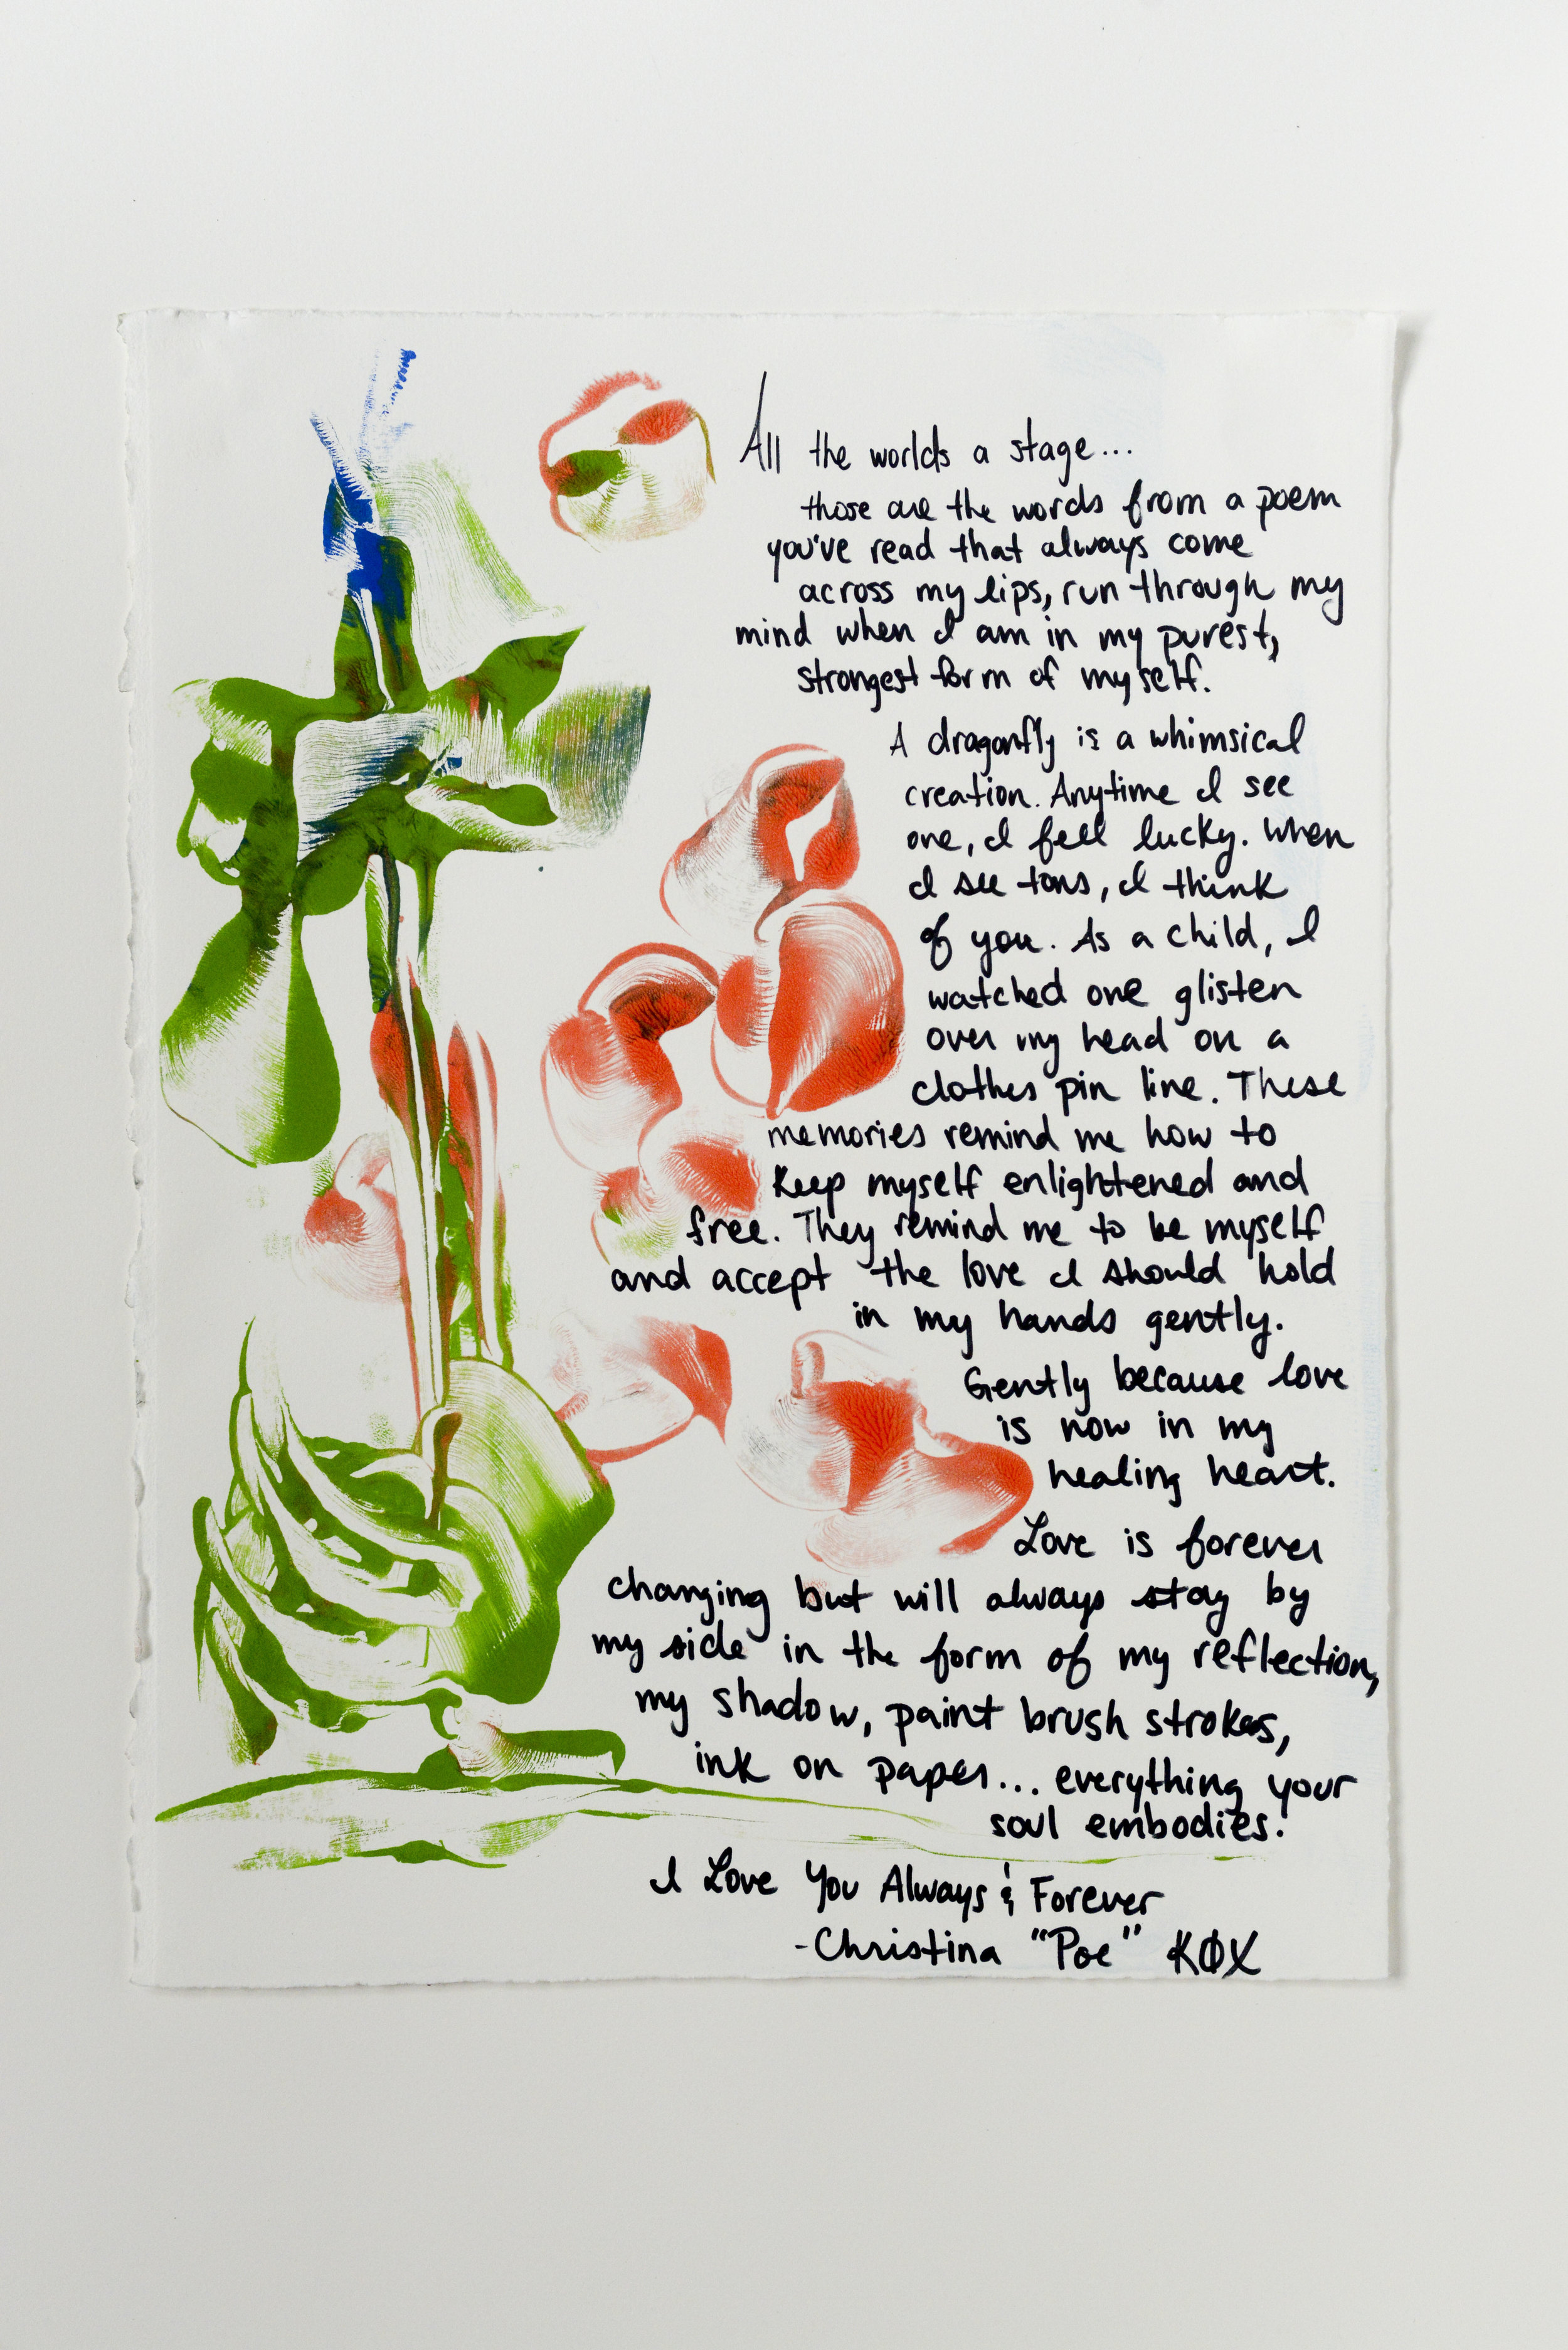 All the worlds a stage...
those are the words from a poem
you've read that always come
across my lips, run through my
mind when I am in my purest,
strongest form of myself.
A dragonfly is a whimsical
creation. Anytime I see
one, I feel lucky. When
I see tons, I think
of you. As a child, I
watched one glisten
over my head on a
clothes pin line. These
memories remind me how to
keep myself enlightened and
free. They remind me to be myself
and accept the love I should hold
in my hands gently.
Gently because love
is now in my
healing heart.
Love is forever
changing but will always stay by
my side in the form of my reflection,
my shadow, paint brush strokes,
ink on paper... everything your
soul embodies.
I Love You Always & Forever
-Christina "Poe" KØX